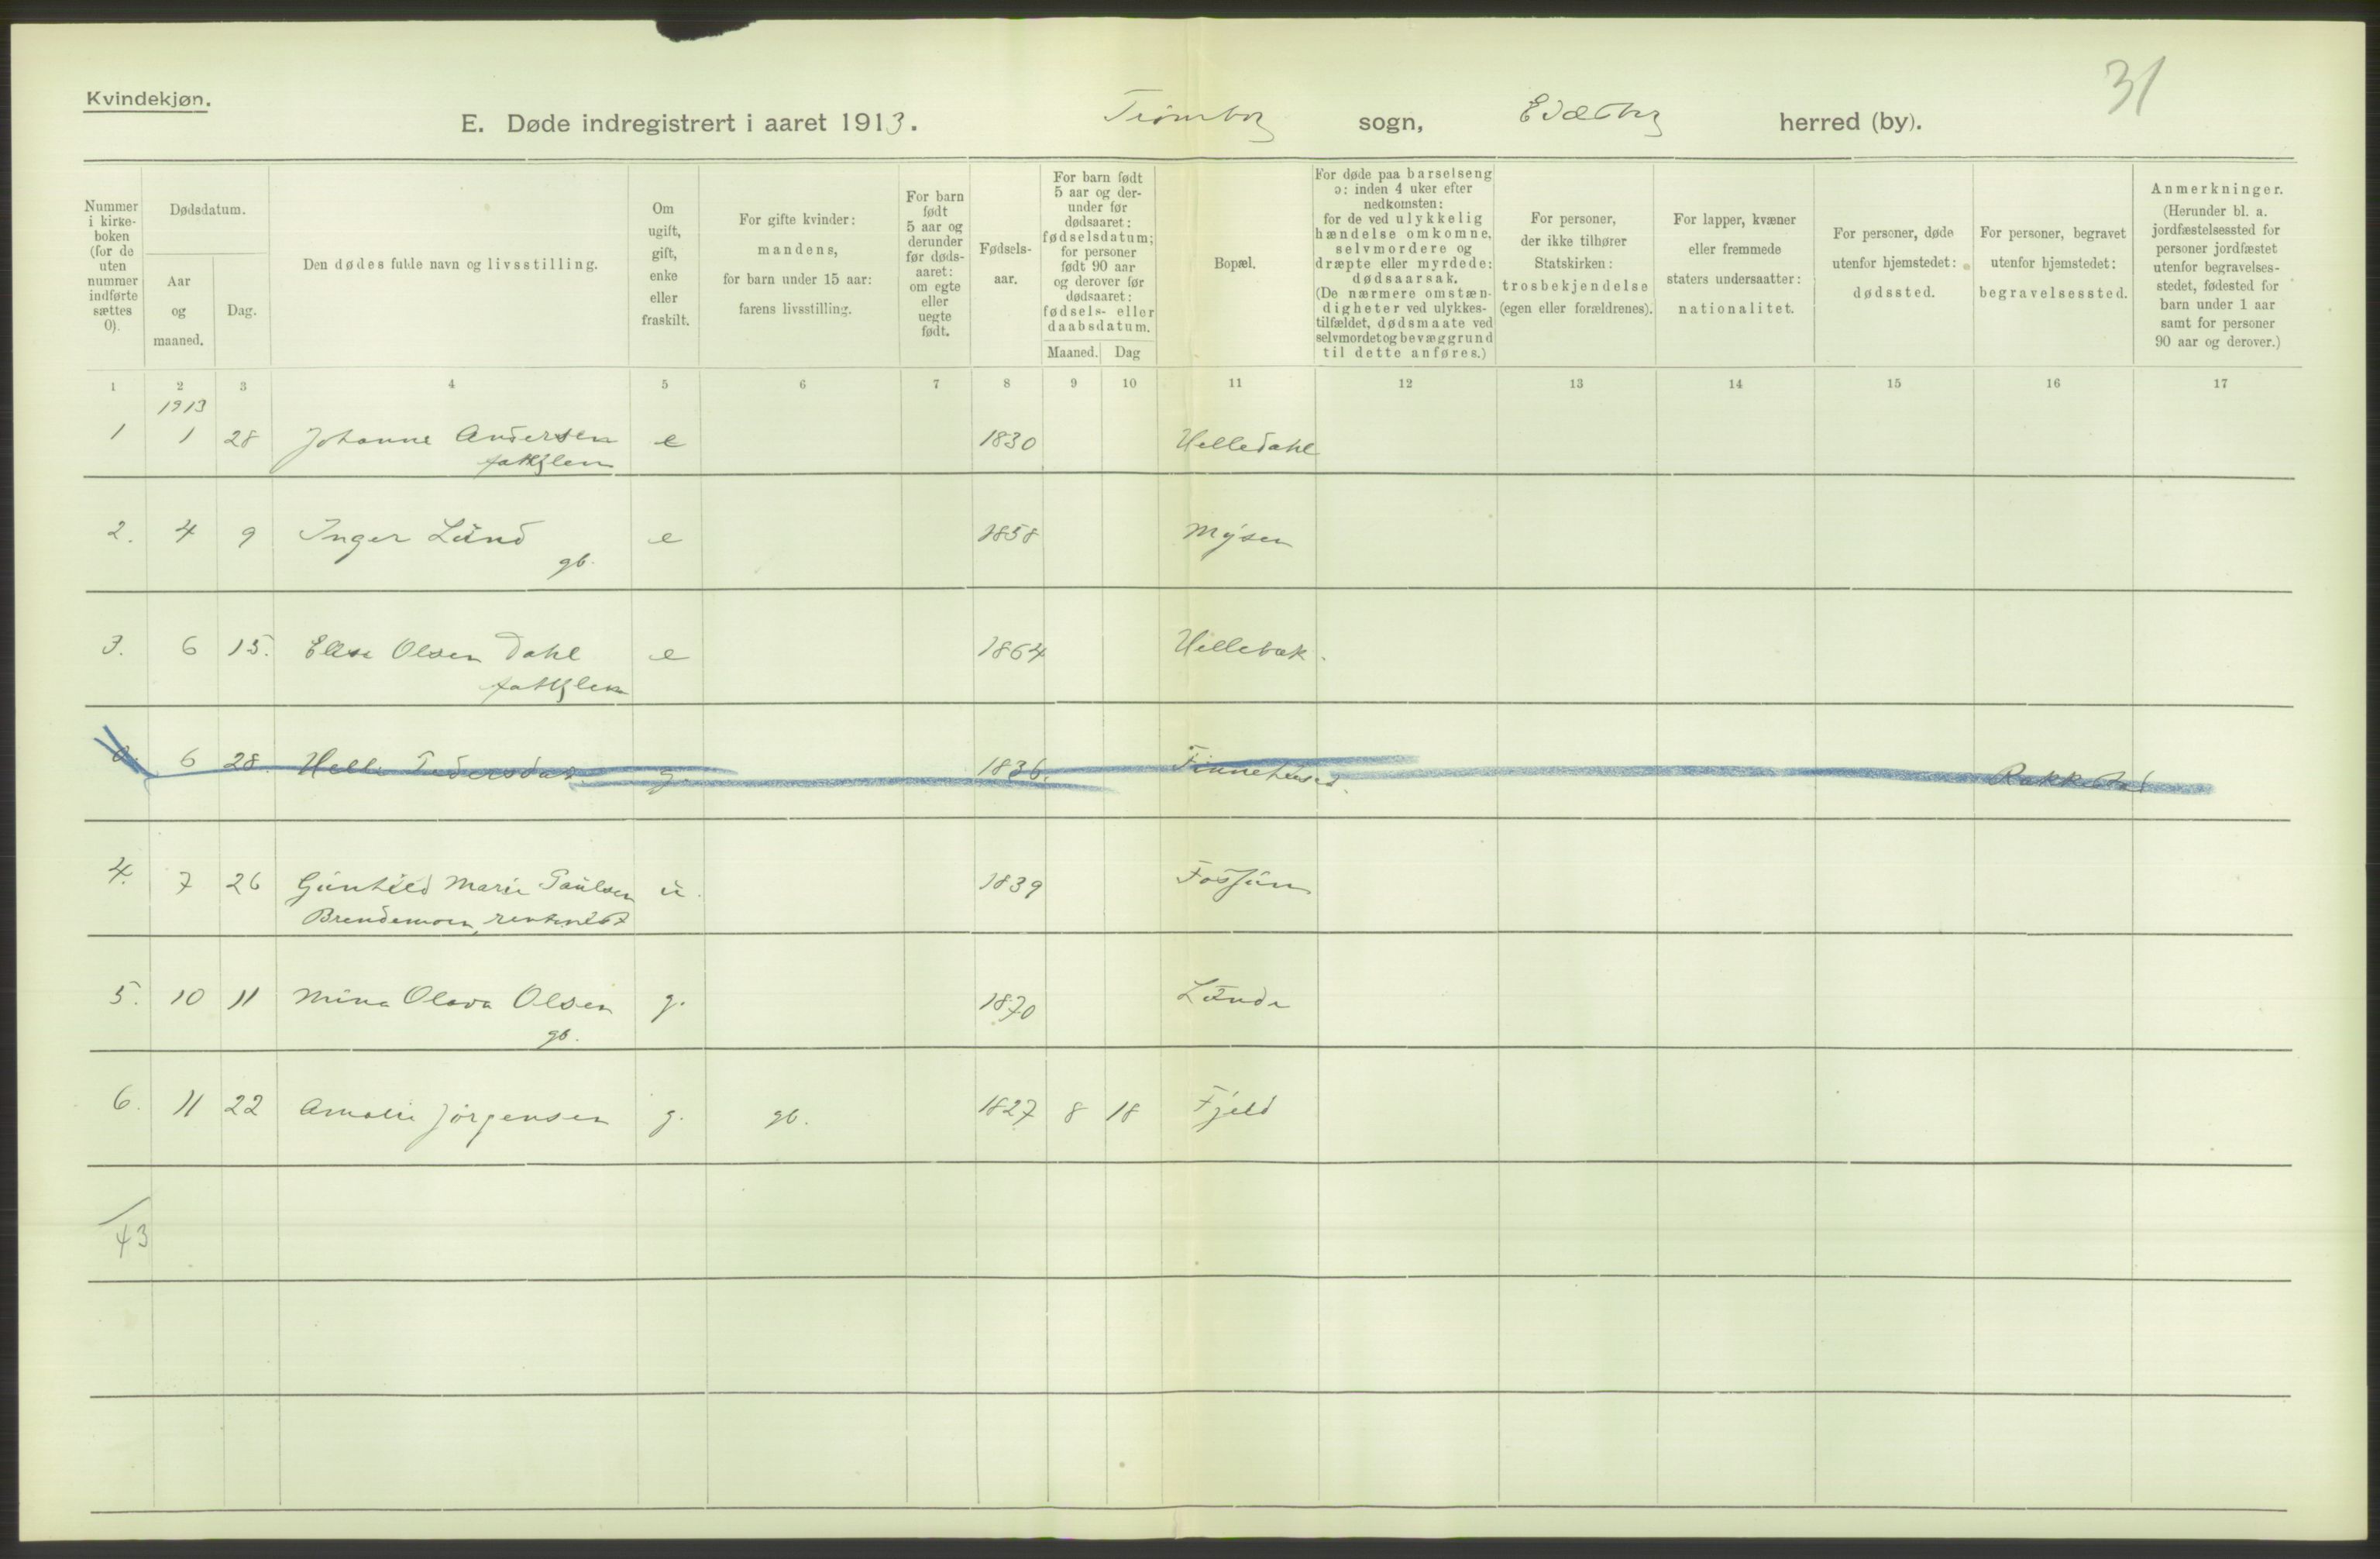 31
Kvindekjøn.
E. Døde indregistrert i aaret 1913. Trømborg sogn, Eidsberg herred (by).
Nummer i kirke-boken (for de uten nummer indførte sættes 0).
Dødsdatum.
Aar og maaned.
Dag.
Den dødes fulde navn og livsstilling.
Om ugift, gift, enke eller fraskilt.
For gifte kvinder: mandens, for barn under 15 aar: farens livsstilling.
For barn født 5 aar og derunder før døds-aaret: om egte eller uegte født.
Fødsels-aar.
For barn født 5 aar og der-under før dødsaaret: fødselsdatum; for personer født 90 aar og derover før dødsaaret: fødsels- eller daabsdatum.
Maaned. Dag
Bopæl.
For døde paa barselseng ɔ: inden 4 uker efter nedkomsten: for de ved ulykkelig hændelse omkomne, selvmordere og dræpte eller myrdede: dødsaarsak. (De nærmere omstæn-digheter ved ulykkes-tilfældet, dødsmaate ved selvmordet og bevæggrund til dette anføres.)
For personer, der ikke tilhører Statskirken: trosbekjendelse (egen eller forældrenes).
For lapper, kvæner eller fremmede staters undersaatter: nationalitet.
For personer, døde utenfor hjemstedet: dødssted.
For personer, begravet utenfor hjemstedet: begravelsessted.
Anmerkninger. (Herunder bl. a. jordfæstelsessted for personer jordfæstet utenfor begravelses-stedet, fødested for barn under 1 aar samt for personer 90 aar og derover.)
1 2 3 4 5 6 7 8 9 10 11 12 13 14 15 16 17
1913
1 1 28 Johanne Andersen e 1830 Helledahl
fattiglem
2. 4 9 Inger Lund e 1858 Mysen
gb.
3. 6 15. Else Olsen Dahl e 1864 Hellebæk.
fattiglem
0. 6 28. Helle Pedersdat. g. 1836. Rakkestad
4. 7 26 Gunhild Marie Paulsen u. 1839 Fossum
Brendemoen,
5. 10 11 Mina Olava Olsen g. 1870 Lunde
gb.
6. 11 22 Amalie Jørgensen g. gb. 1827 8 18 Fjeld
43